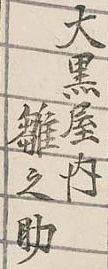 大黒屋内
雛之助